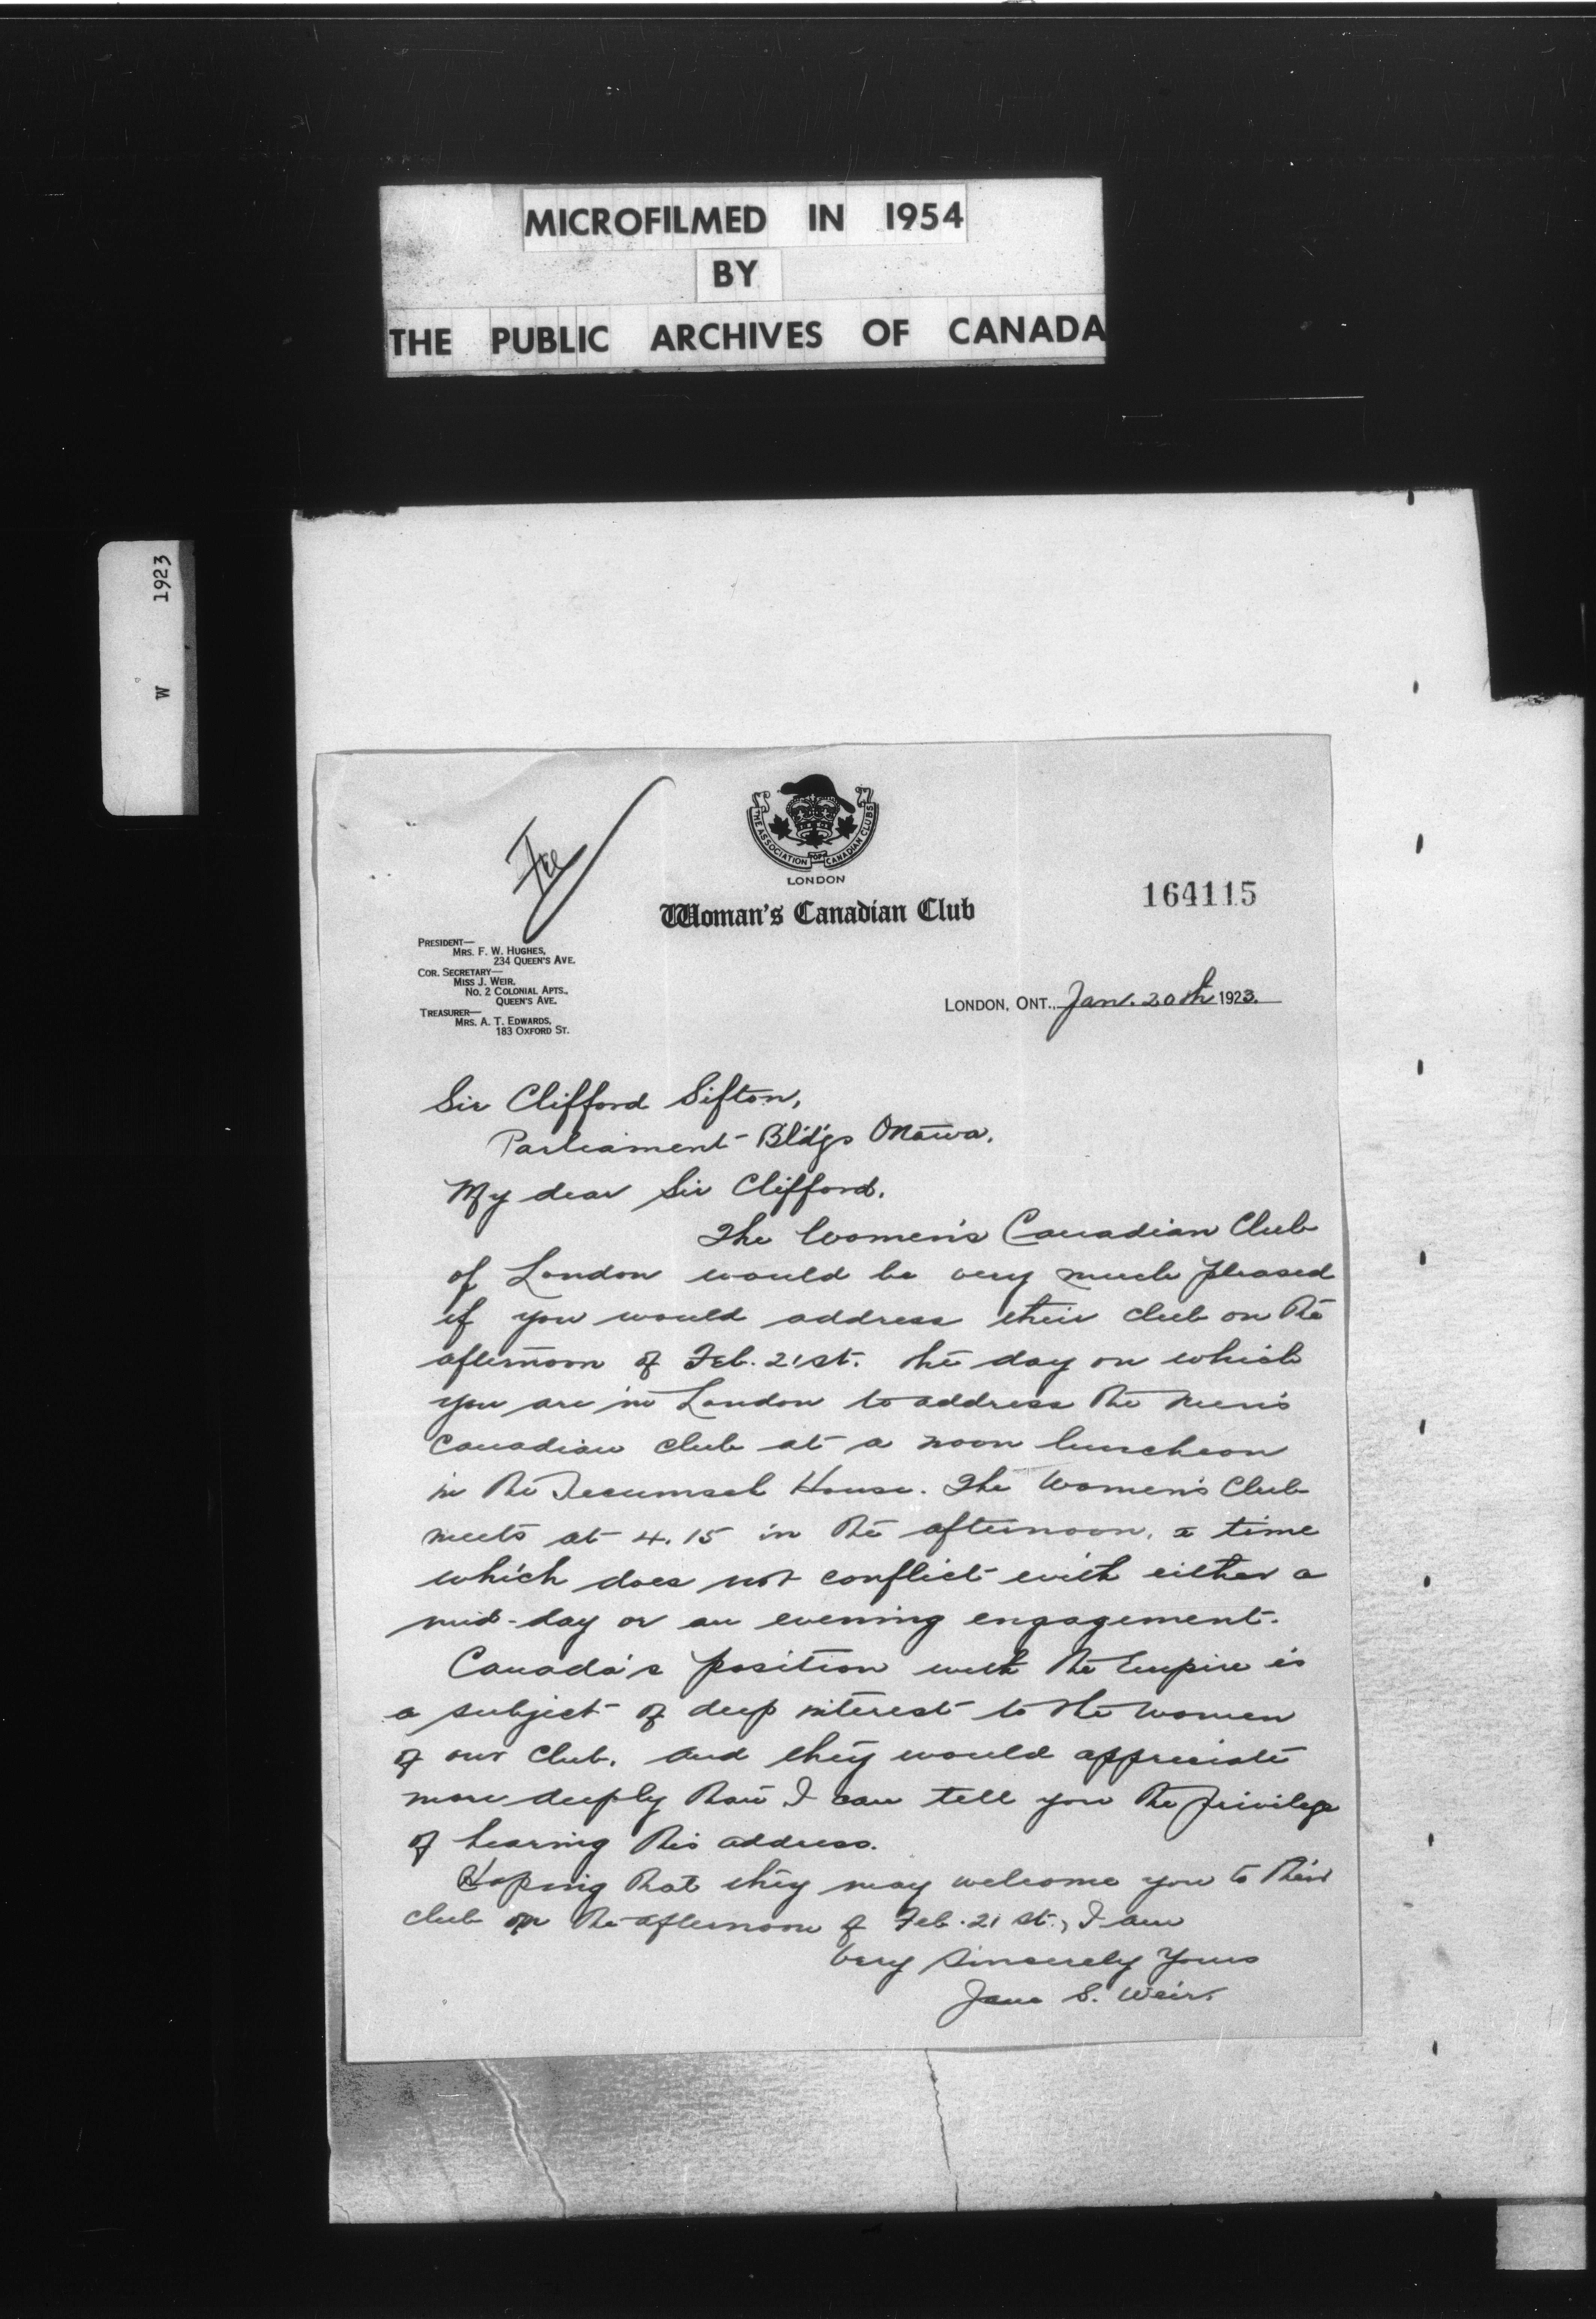 MICROFILMED IN 1954
BY
THE PUBLIC ARCHIVES OF CANADA
W 1923
THE ASSOCIATION OF CANADIAN CLUBS
LONDON
Woman's Canadian Club
164115
PRESIDENT—
MRS. F. W. HUGHES,
234 QUEEN'S AVE.
COR. SECRETARY—
MISS J. WEIR,
NO. 2 COLONIAL APTS.,
QUEEN'S AVE.
TREASURER—
MRS. A. T. EDWARDS,
183 OXFORD ST.
LONDON, ONT., Jan. 20th 1923.
Sir Clifford Sifton,
Parliament Bld'gs Ottawa.
My dear Sir Clifford.
The Women's Canadian Club
of London would be very much pleased
if you would address their club on the
afternoon of Feb. 21st. the day on which
you are in London to address the Men's
Canadian club at a noon luncheon
in the Tecumseh House. The Women's Club
meets at 4.15 in the afternoon, a time
which does not conflict with either a
mid-day or an evening engagement.
Canada's position with the Empire is
a subject of deep interest to the women
of our club, and they would appreciate
more deeply than I can tell you the privilege
of hearing this address.
Hoping that they may welcome you to their
club on the afternoon of Feb. 21st, I am
Very Sincerely Yours
Jane S. Weir.